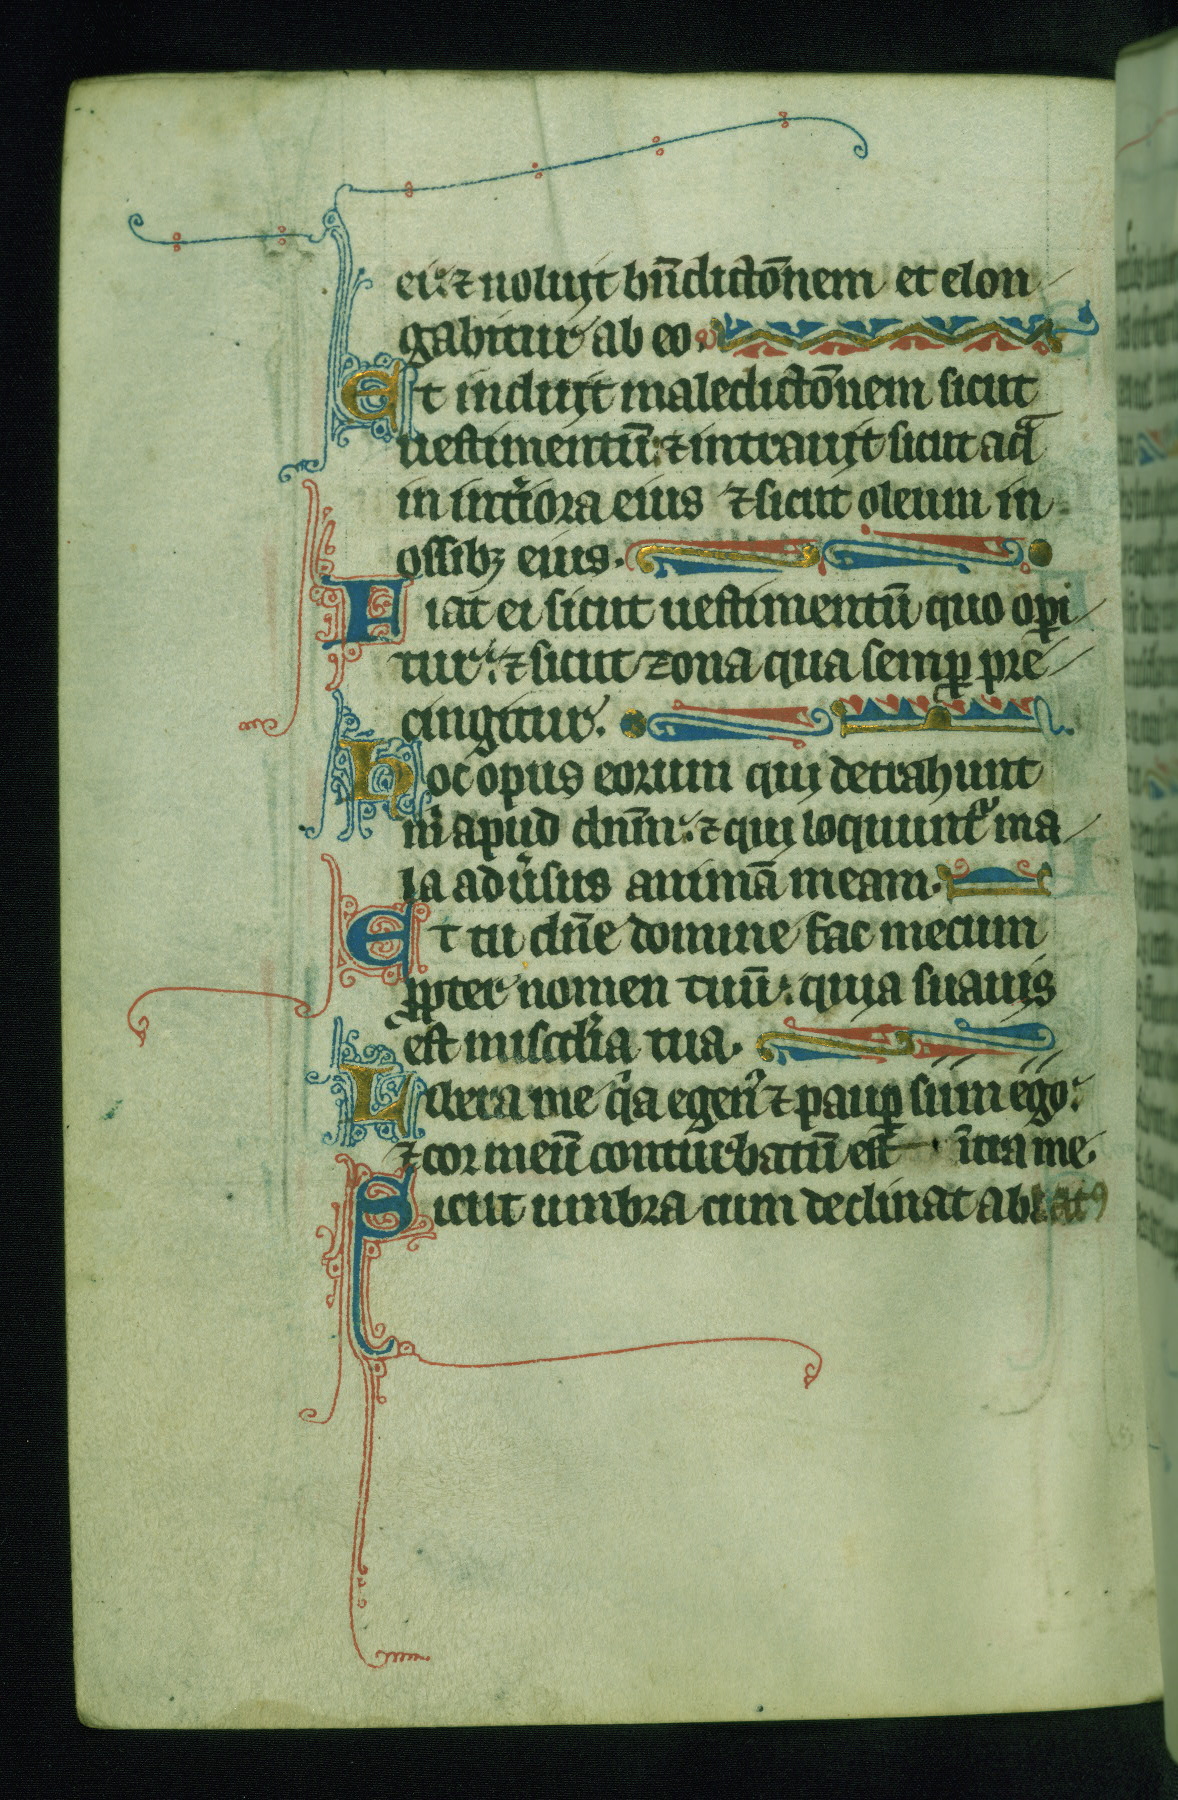 ei: ⁊ noluit bn̄dictōnem et elon
gabitur ab eo.
Et induit maledictōnem sicut
uestimentū: ⁊ intrauit sicut aqᷓ
in intͥiora eius ⁊ sicut oleum in
ossibꝫ eius.
Fiat ei sicut uestimentū quo opi
tur: ⁊ sicut zona qua semꝑ pre
cingitur.
Hoc opus eorum qui detrahunt
m̄ apud dnm̄: ⁊ qui loquuntᷓ ma
la adu̓sus animā meam.
Et tu dn̄e domine fac mecum
ꝓpter nomen tuū: quia suauis
est miscd̓ia tua.
Libera me qͥa egen̓ ⁊ pauꝑ sum ego:
⁊ cor meū conturbatū est ītra me.
Sicut umbra cum declinat ablatꝰ